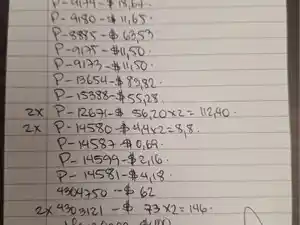 P-9174-$ 18,67.
P-9180-$ 11,65.
P-8885-$ 63,53
P-9175-$11,50.
P-9173-$11,50.
P-13654-$ 83,82.
P-15388-$55,28.
2x P-12671-$ 56,20x2=112,40.
2x P-14580-$ 4,4x2=8,8.
P-14587-$ 0,69.
P-14599-$ 2,16.
P-14581-$ 4,18.
4304750 -$ 62
2x 4303121 -$ 73x2=146.